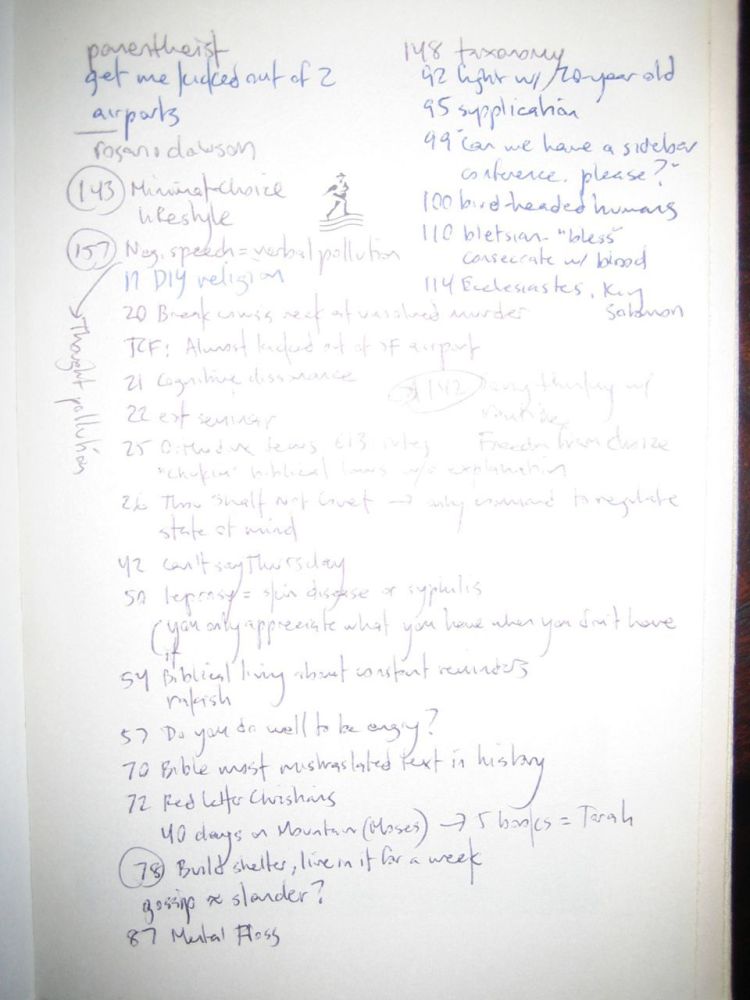 panentheist
get me kicked out of 2
airports
rosario dawson
143 Minimal-choice
lifestyle
157 Neg. speech = verbal pollution
Thought pollution
17 DIY religion
20 Break cow's neck at unsolved murder
TCF: Almost kicked out of SF airport
21 Cognitive dissonance
22 est seminar
25 Orthodox
biblical laws w/o explanation
26 Thou shalt not covet → only command to regulate
state of mind
42 can't say Thursday
50 leprosy = skin disease or syphilis
(you only appreciate what you have when you don't have
it
54 Biblical living about constant reminders
rakish
57 Do you do well to be angry?
70 Bible most mistranslated text in history
72 Red letter Christians
40 days on Mountain (Moses) → 5 books = Torah
78 Build shelter, live in it for a week
gossip ≈ slander?
87 Mental Floss
148 taxonomy
92 fight w/ 70-year old
95 supplication
99 "Can we have a sidebar
conference, please?"
100 bird-headed humans
110 bletsian - "bless"
consecrate w/ blood
114 Ecclesiastes, King
Solomon
142
Freedom from choice